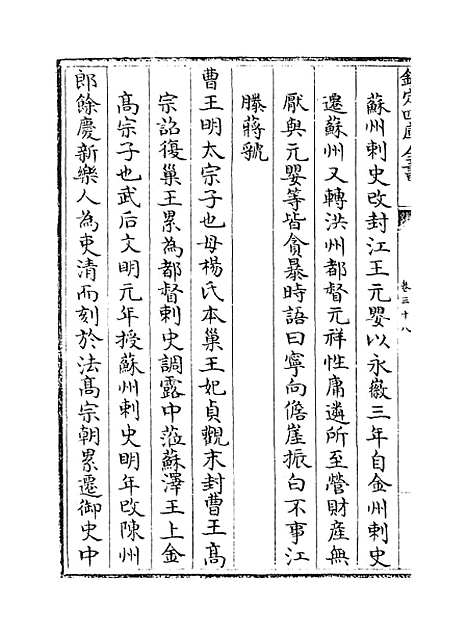 欽定四庫全書
卷三十八
蘇州刺史改封江王元嬰以永徽三年自金州刺史
遷蘇州又轉洪州都督元祥性庸遴所至營財産無
厭與元嬰等皆貪暴時語曰寧向儋崖振白不事江
滕蔣虢
曹王明太宗子也母楊氏本巢王妃貞觀末封曹王髙
宗詔復巢王累為都督刺史調露中蒞蘇澤王上金
髙宗子也武后文明元年授蘇州刺史明年改陳州
郎餘慶新樂人為吏清而刻於法髙宗朝累遷御史中